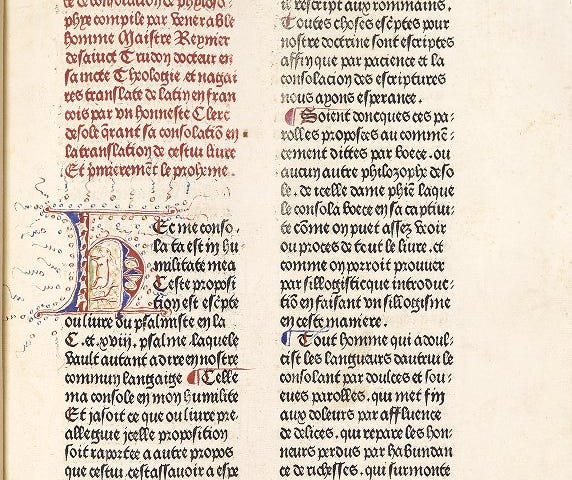 te de consolation de phyloso-
phye compile par venerable
homme Maistre Reynier
desainct Trudon docteur en
saincte Theologie et nagai
res translate de latin en fran
cois par vn honneste Clerc
desole q̄rant sa consolatiō en
la translation de cestui liure
Et p̄mierement le proheme.
HEc me conso-
la ta est in hu-
militate mea
Ceste proposi
tion est esc̄pte
ou liure du psalmiste en la
C. et .xviij. psalme .laquele
vault autant a dire en nostre
commun langaige ¶ Celle
ma console en mon humilite
Et jasoit ce que ou liure pre-
allegue jcelle proposition
soit raportee a autre propos
que cestui .cestassauoir a espe
il rescript aux rommains.
Toutes choses esc̄ptes pour
nostre doctrine sont escriptes
affin que par pacience et la
consolacion des escriptures
nous ayons esperance.
¶ Soient doncques ces pa-
rolles proposees au commē-
cement dittes par boece .ou
aucun autre philozophe deso
le. de icelle dame phiē laque
le consola boece en sa captiui-
te cōme on puet assez veoir
ou proces de tout le liure .et
comme on porroit prouuer
par sillogisticque introduc-
tiō en faisant vn sillogisme
en ceste maniere.
¶ Tout homme qui adoul-
cist les langueurs dautrui le
consolant par doulces et sou-
eues parolles. qui met fin
aux doleurs par affluence
de delices. qui repare les hon-
neurs perdus par habundan
ce de richesses. qui surmonte